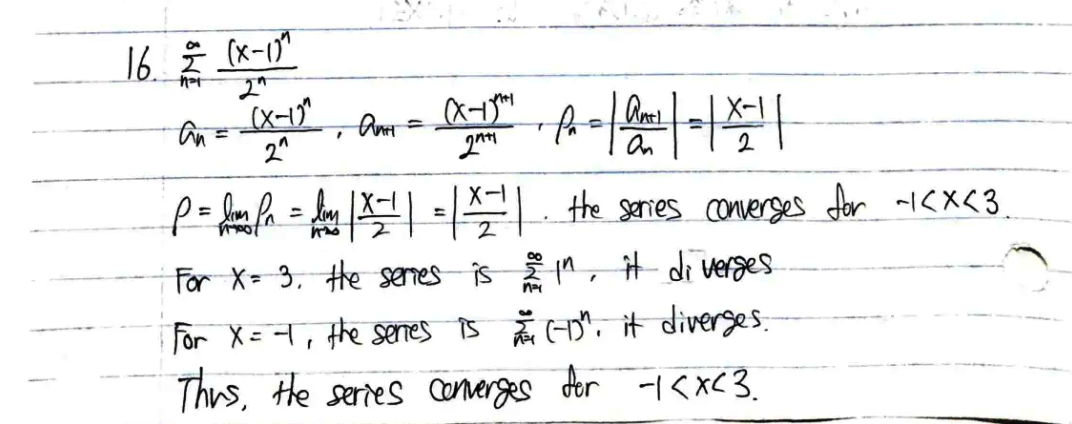 16. ∞Σn=1 (x-1)^n / 2^n
a_n = (x-1)^n / 2^n , a_{n+1} = (x-1)^{n+1} / 2^{n+1} , ρ_n = |a_{n+1} / a_n| = |x-1 / 2|
ρ = lim n→∞ ρ_n = lim n→∞ |x-1 / 2| = |x-1 / 2| . the series converges for -1<x<3.
For x = 3. the series is ∞Σn=1 1^n , it diverges
For x = -1, the series is ∞Σn=1 (-1)^n, it diverges.
Thus, the series converges for -1<x<3.